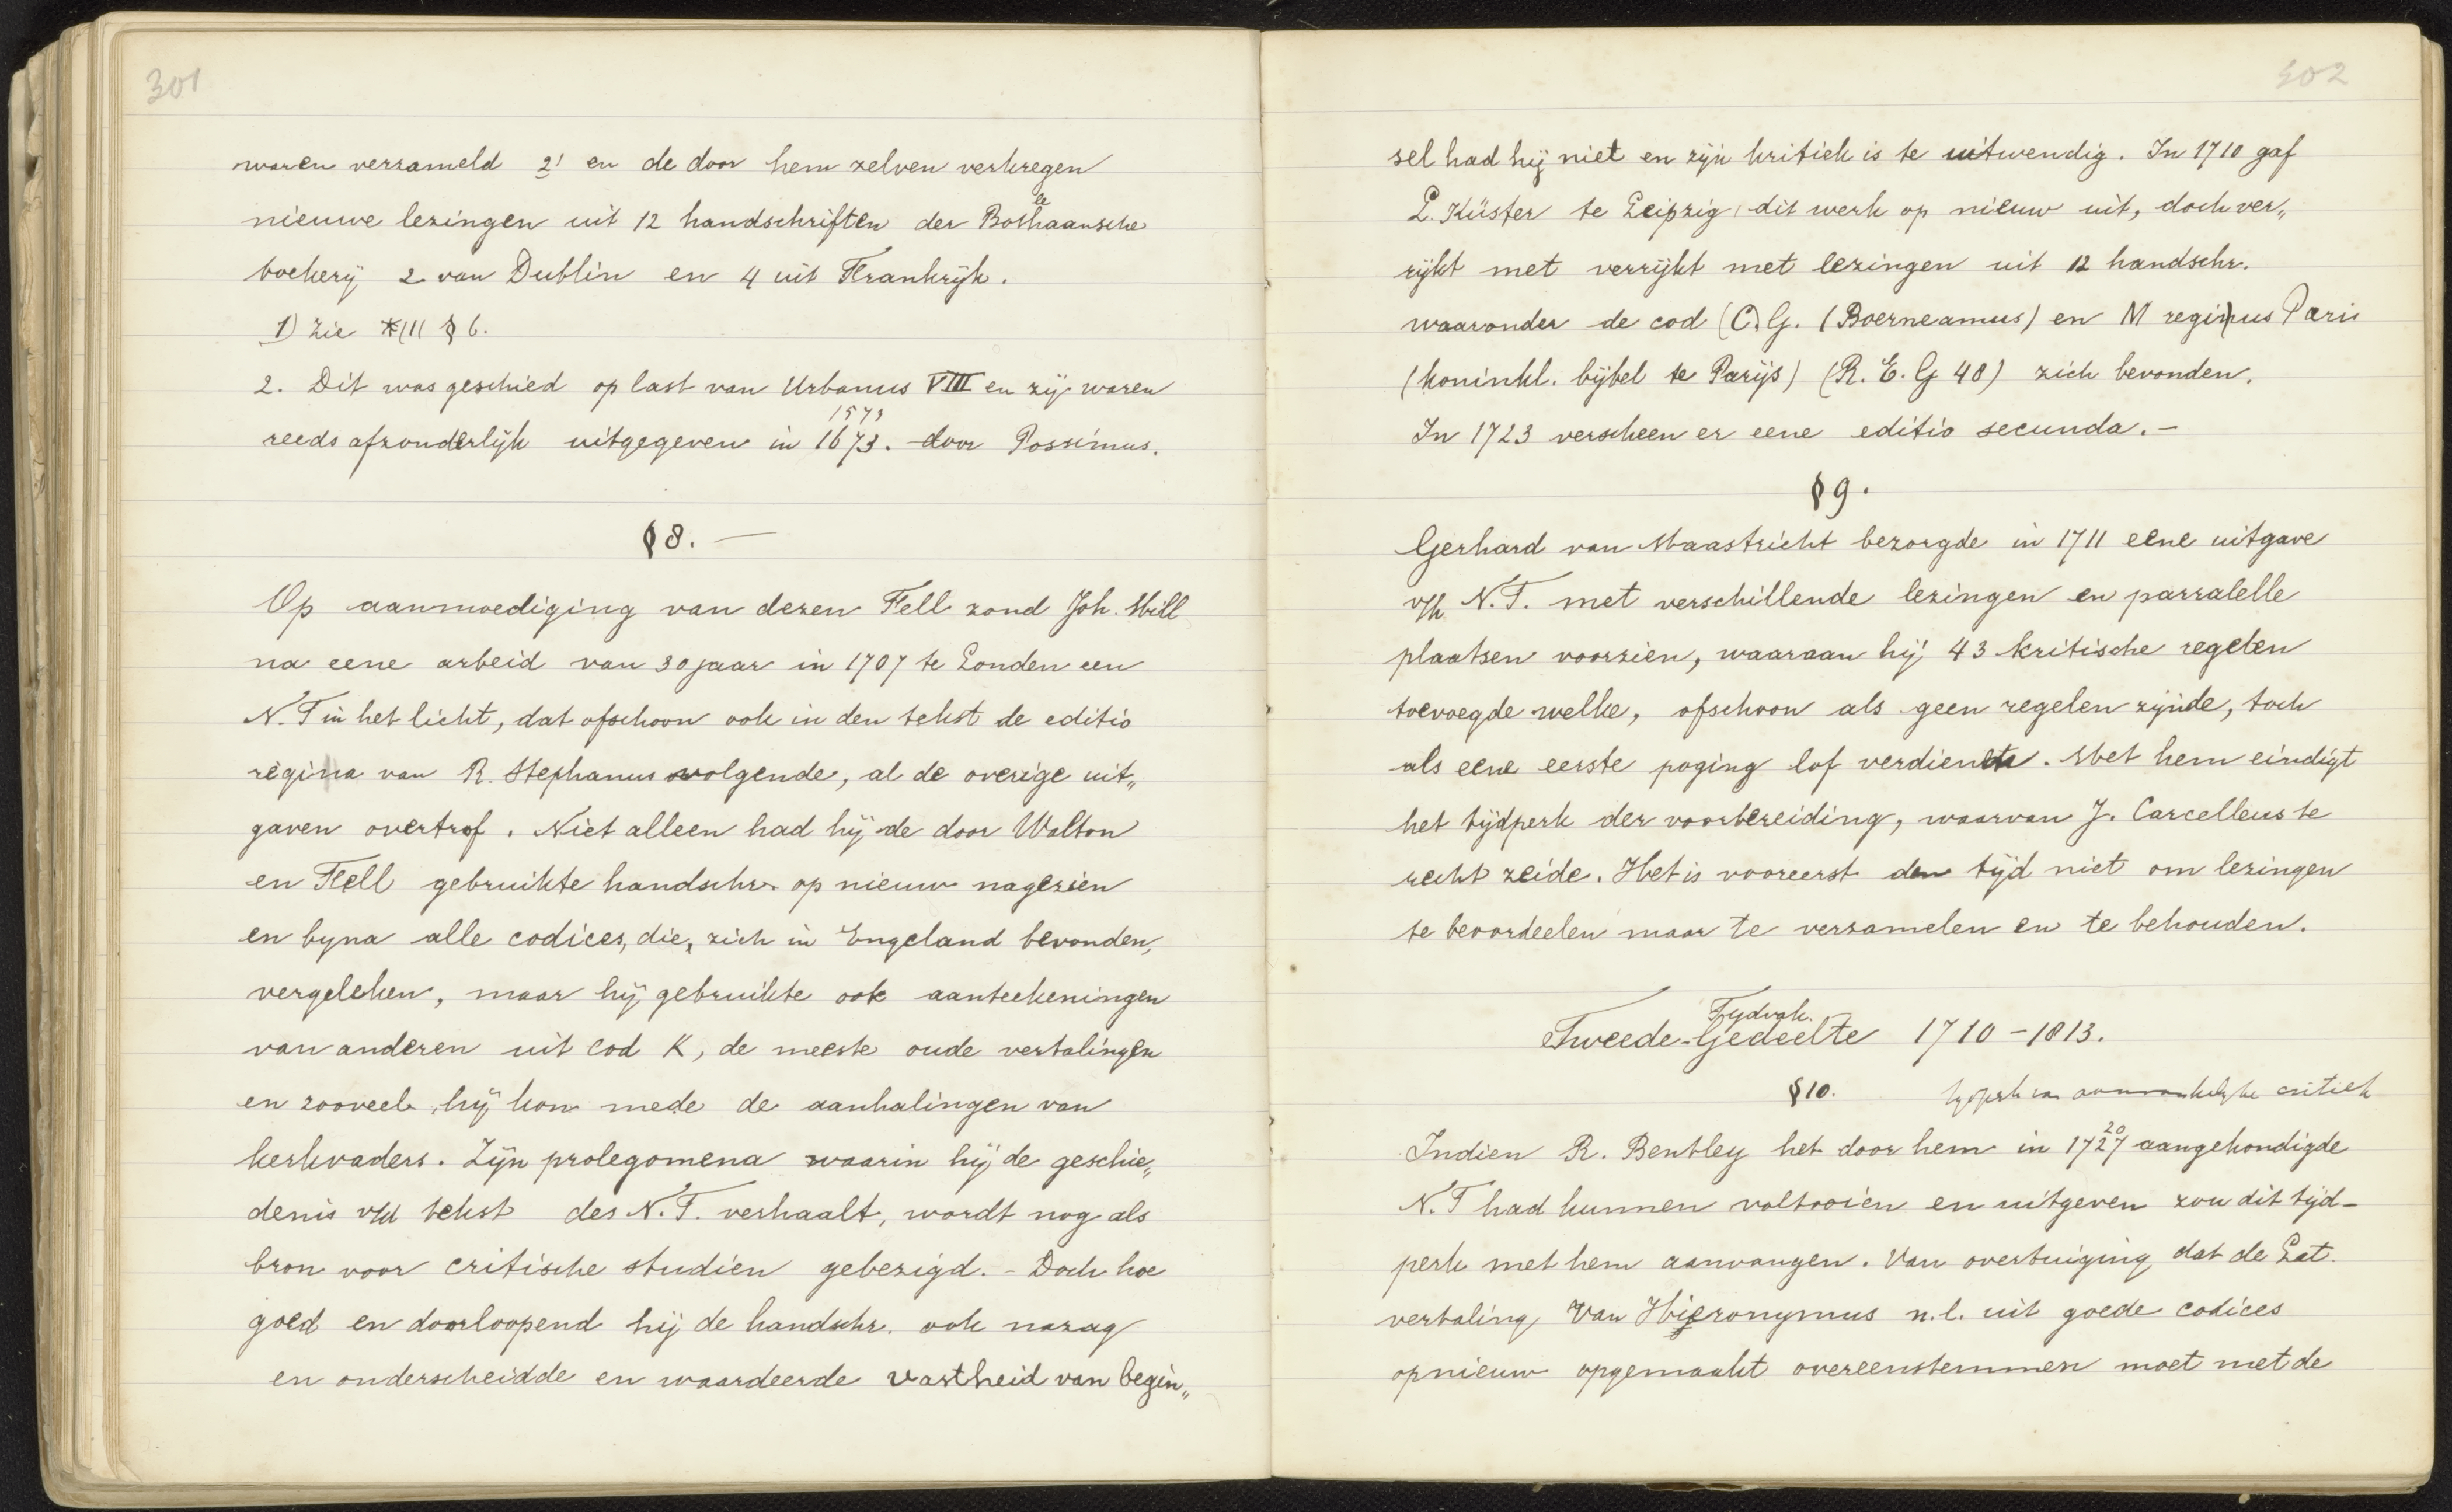 301
waren verzameld 2) en de door hem zelven verkregen
le
nieuwe lezingen uit 12 handschriften der Bothaansche
boekerij 2 van Dublin en 4 uit Frankrijk.
1) Zie XIII § 6.
2. Dit was geschied op last van Urbanus VIII en zij waren
1573
reeds afzonderlijk uitgegeven in 1673. door Possimus.
§ 8. —
Op aanmoediging van dezen Fell zond Joh. Mill
na eene arbeid van 30 jaar in 1707 te Londen een
N. T in het licht, dat ofschoon ook in den tekst de editio
regina van R. Stephanus volgende, al de overige uit„
gaven overtrof. Niet alleen had hij de door Walton
en Fell gebruikte handschr. op nieuw nagezien
en byna alle codices, die, zich in Engeland bevonden,
vergeleken, maar hij gebruikte ook aanteekeningen
van anderen uit cod K, de meeste oude vertalingen
en zooveel hij kon mede de aanhalingen van
kerkvaders. Zijn prolegomena waarin hij de geschie„
denis v/d tekst des N. T. verhaalt, wordt nog als
bron voor critische studien gebezigd. - Doch hoe
goed en doorloopend hij de handschr. ook nazag
en onderscheidde en waardeerde vastheid van begin„
302
sel had hij niet en zijn kritiek is te uitwendig. In 1710 gaf
L. Küster te Leipzig dit werk op nieuw uit, doch ver„
rijkt met verrijkt met lezingen uit 12 handschr.
waaronder de cod (C. G. (Boerneamus) en M regius Paris
(koninkl. bijbel te Parijs) (R. E. G 48) zich bevonden.
In 1723 verscheen er eene editio secunda. -
§ 9.
Gerhard van Maastricht bezorgde in 1711 eene uitgave
v/h N. T. met verschillende lezingen en parralelle
plaatsen voorzien, waaraan hij 43 kritische regelen
toevoegde welke, ofschoon als geen regelen zijnde, toch
als eene eerste poging lof verdienen. Met hem eindigt
het tijdperk der voorbereiding, waarvan J. Carcelleus te
recht zeide. Het is vooreerst den tijd niet om lezingen
te beoordeelen maar te verzamelen en te behouden.
Tydvak.
Tweede Gedeelte 1710 - 1813.
§ 10. critiek
20
Indien R. Bentley het door hem in 1727 aangekondigde
N. T had kunnen voltooien en uitgeven zou dit tijd-
perk met hem aanvangen. Van overtuiging dat de Lat.
vertaling van Hieronymus n.l. uit goede codices
opnieuw opgemaakt overeenstemmen moet met de